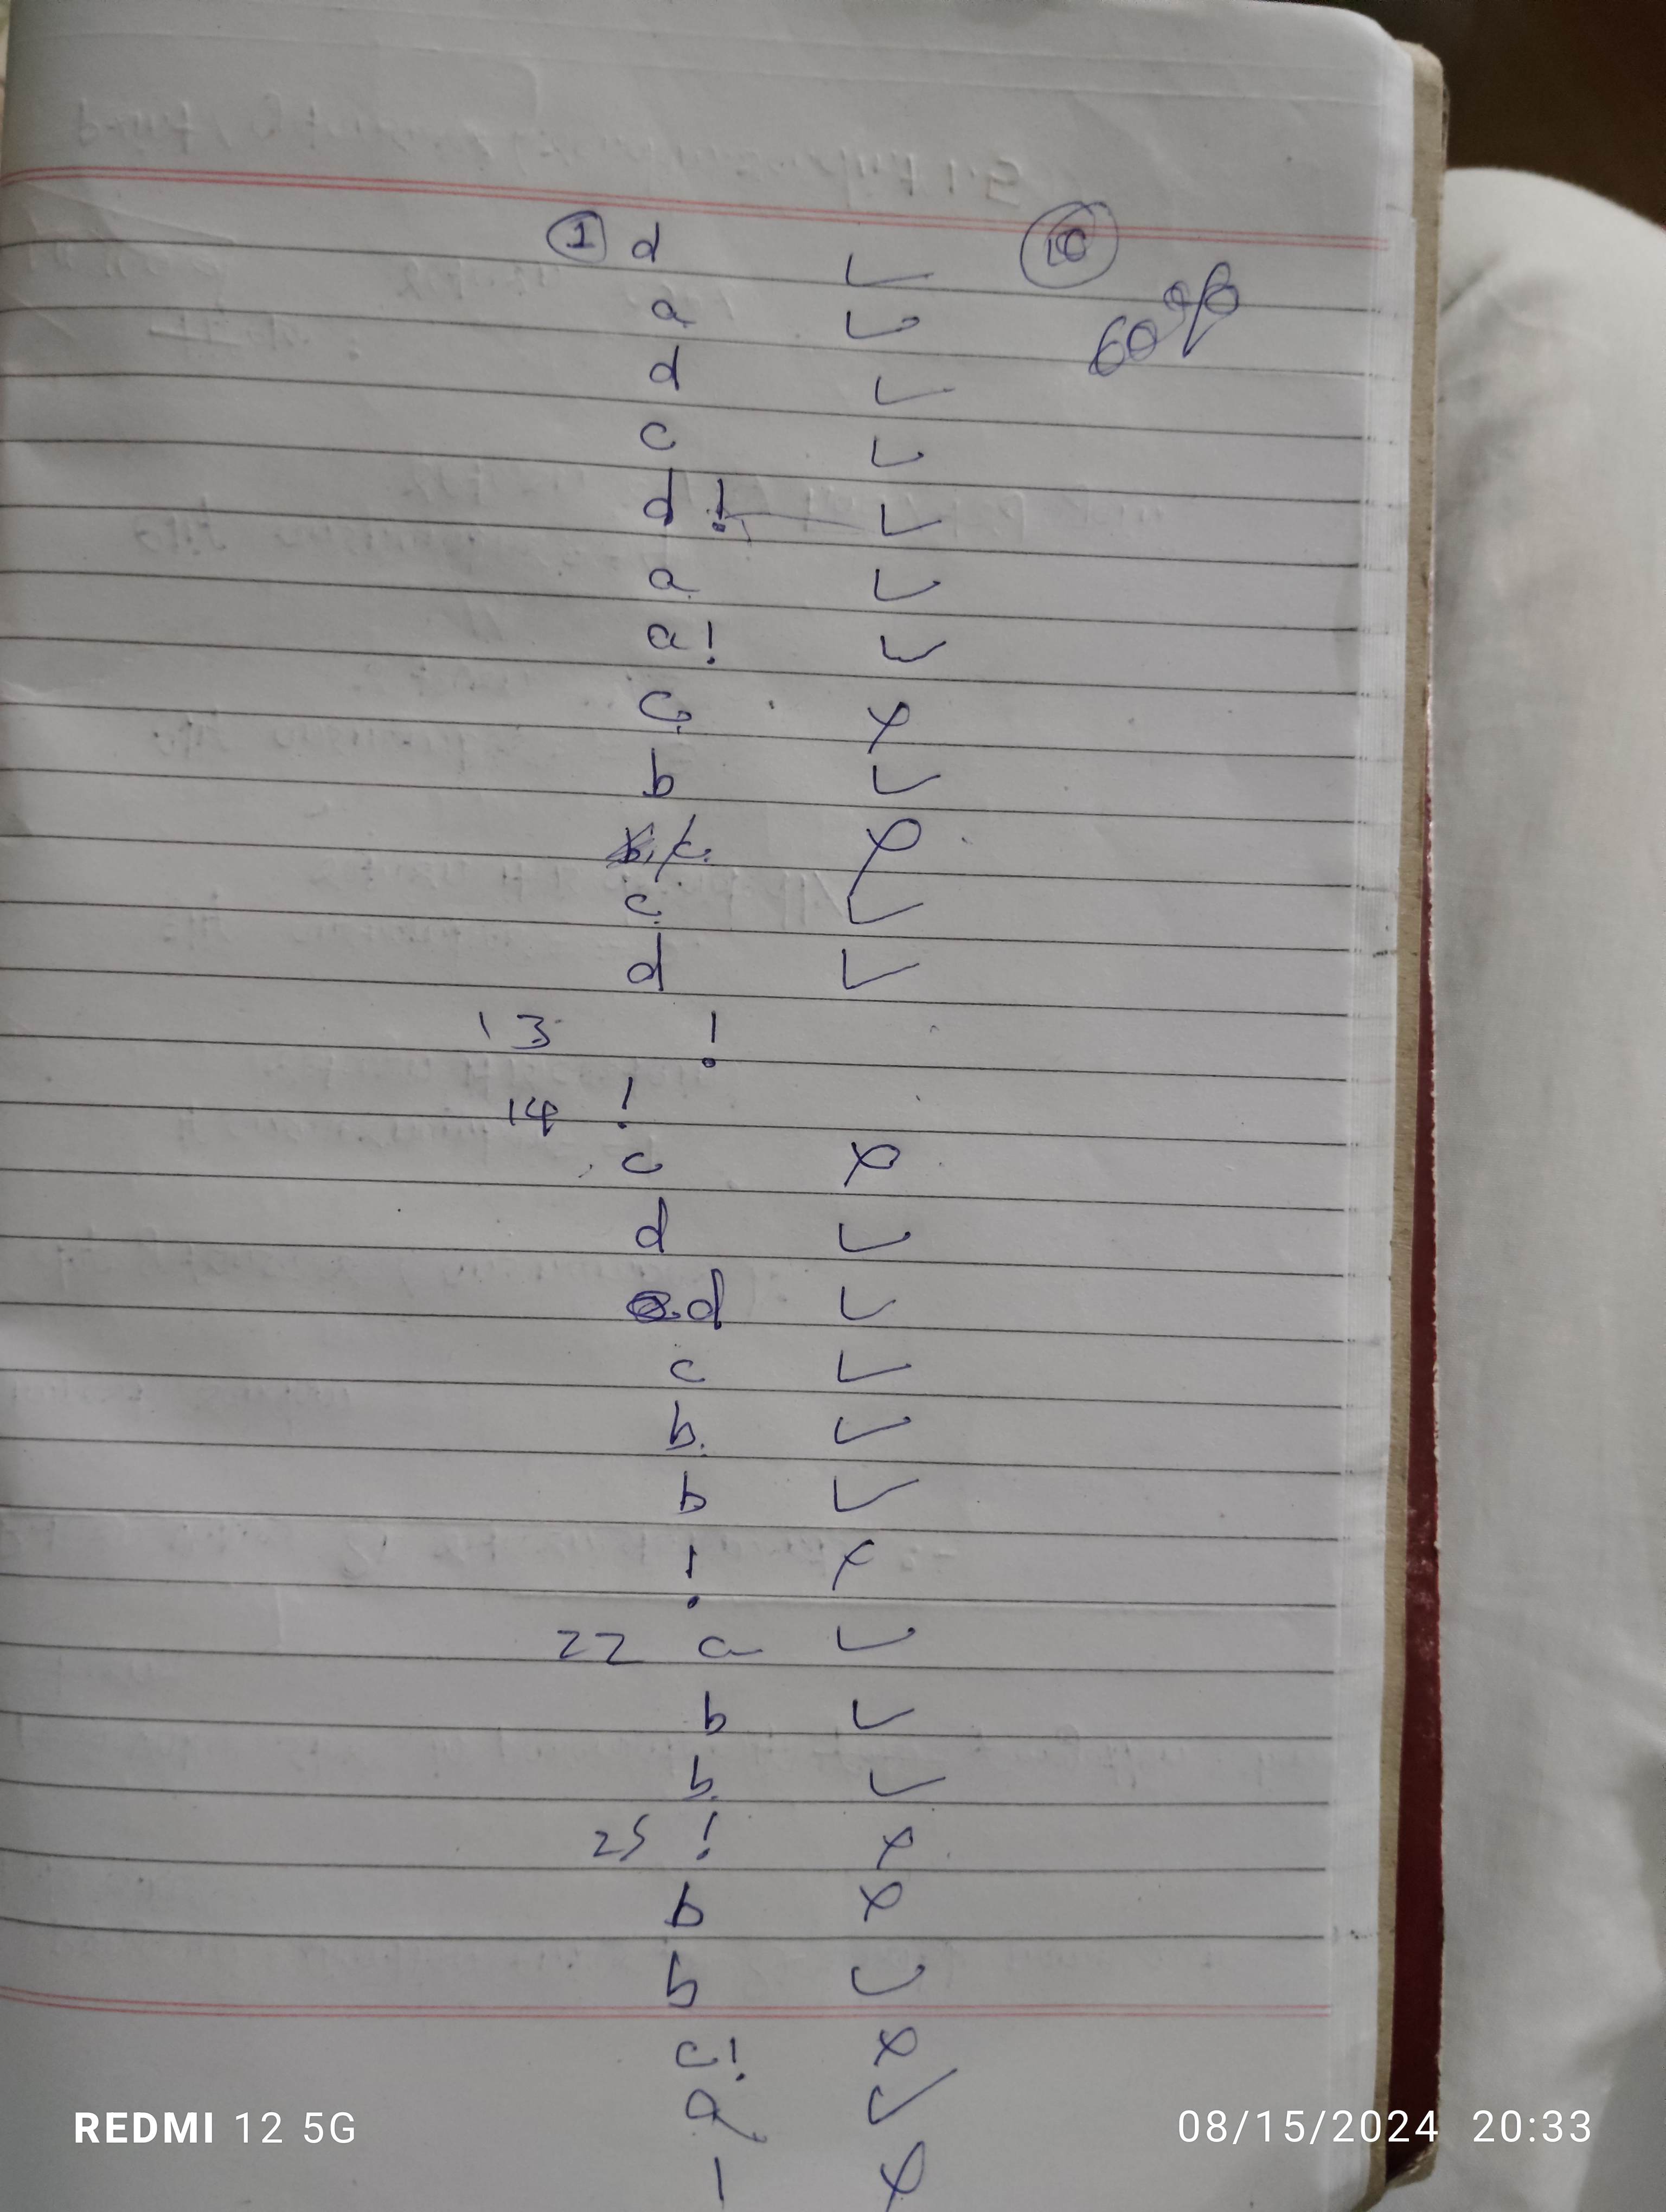 1 d ✓
a ✓
60%
d ✓
c ✓
d ! ✓
a ✓
a! ✓
c x
b ✓
c. x
c ✓
d ✓
13 !
14 !
c x
d ✓
d ✓
c ✓
b. ✓
b ✓
! x
22 a ✓
b ✓
b. ✓
25 ! x
b x
b ✓
c! x
a ✓
REDMI 12 5G
08/15/2024 20:33